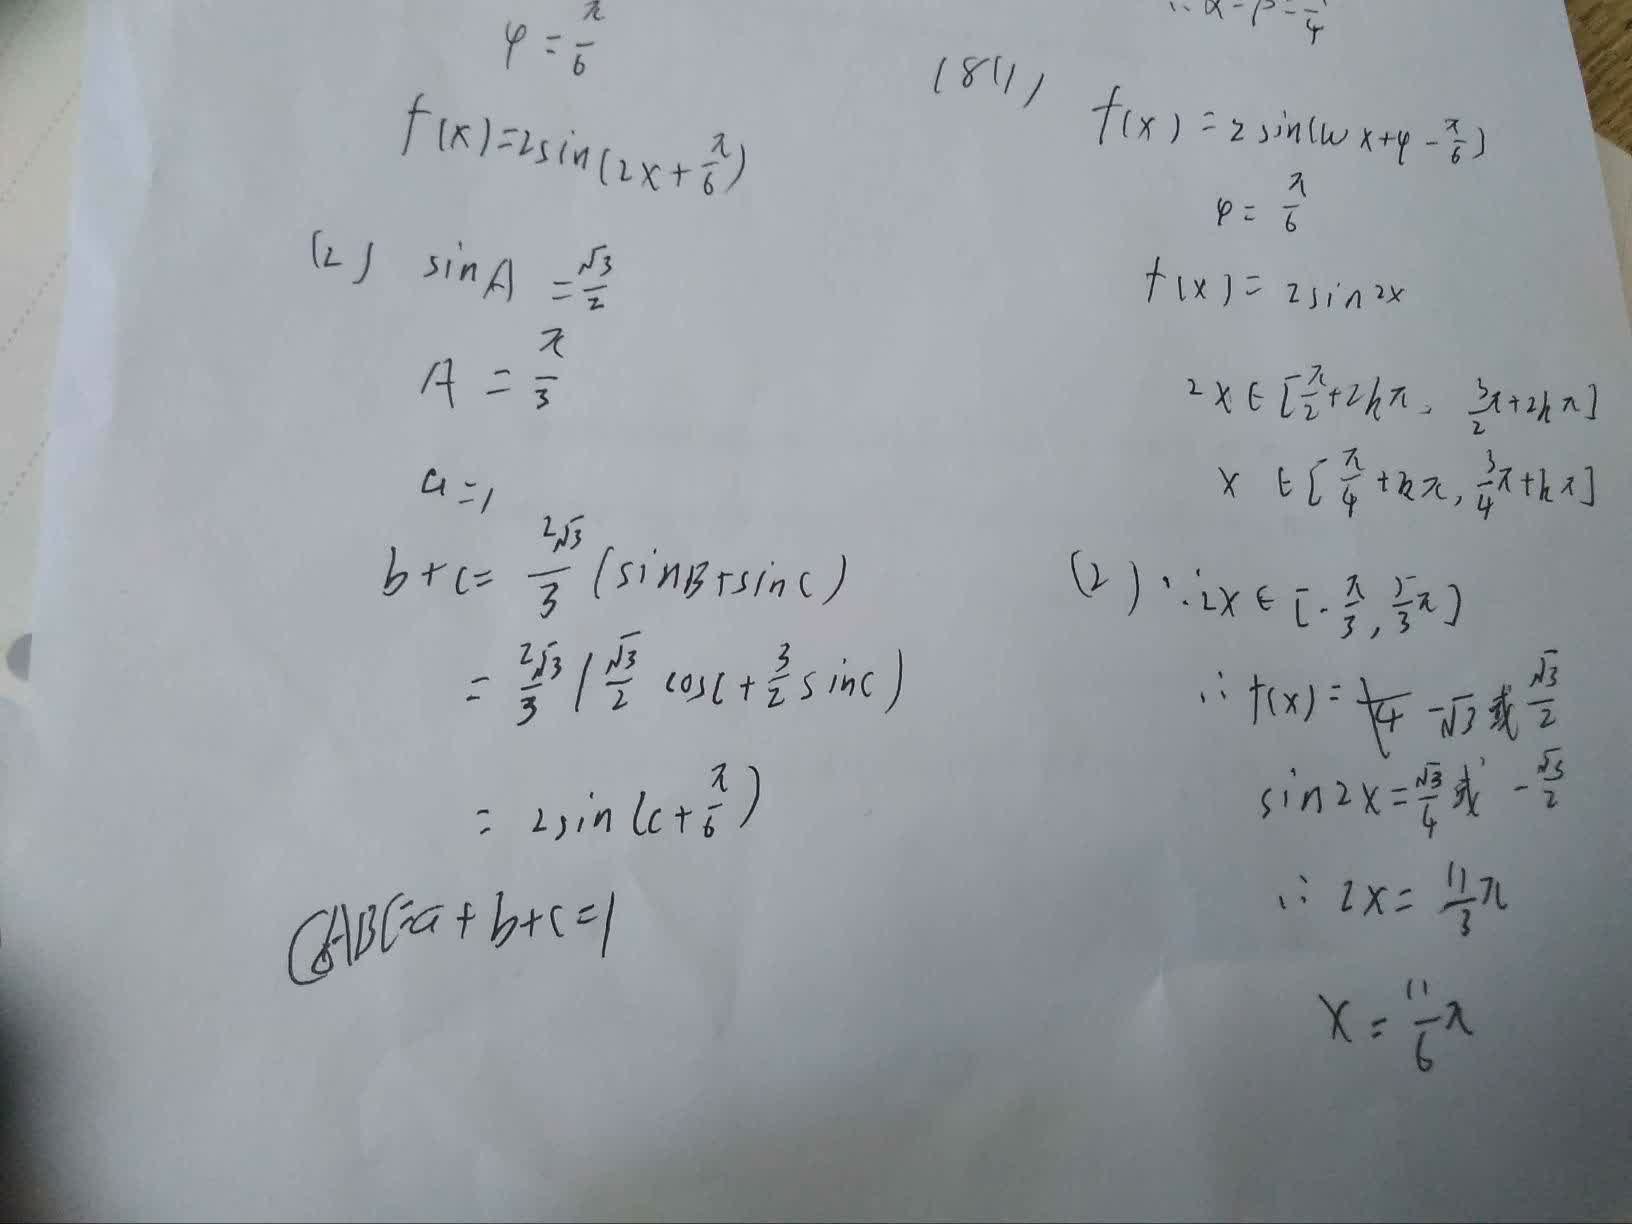 φ = π/6
f(x)=2sin(2x+π/6)
(2) sinA = √3/2
A = π/3
a=1
b+c= 2√3/3 (sinB+sinC)
= 2√3/3 (√3/2 cosC + 3/2 sinC)
= 2sin(C+π/6)
ABC=a+b+c=1
∴α-β=π/4
18(1)
f(x) = 2sin(ωx+φ-π/6)
φ= π/6
f(x)= 2sin2x
2x∈[π/2+2kπ, 3/2π+2kπ]
x ∈[π/4+kπ, 3/4π+kπ]
(2) ∵2x∈[-π/3, 5/3π]
∴f(x)= -√3或√3/2
sin2x=√3/4或 -√3/2
∴ 2x= 11/3π
x = 11/6π